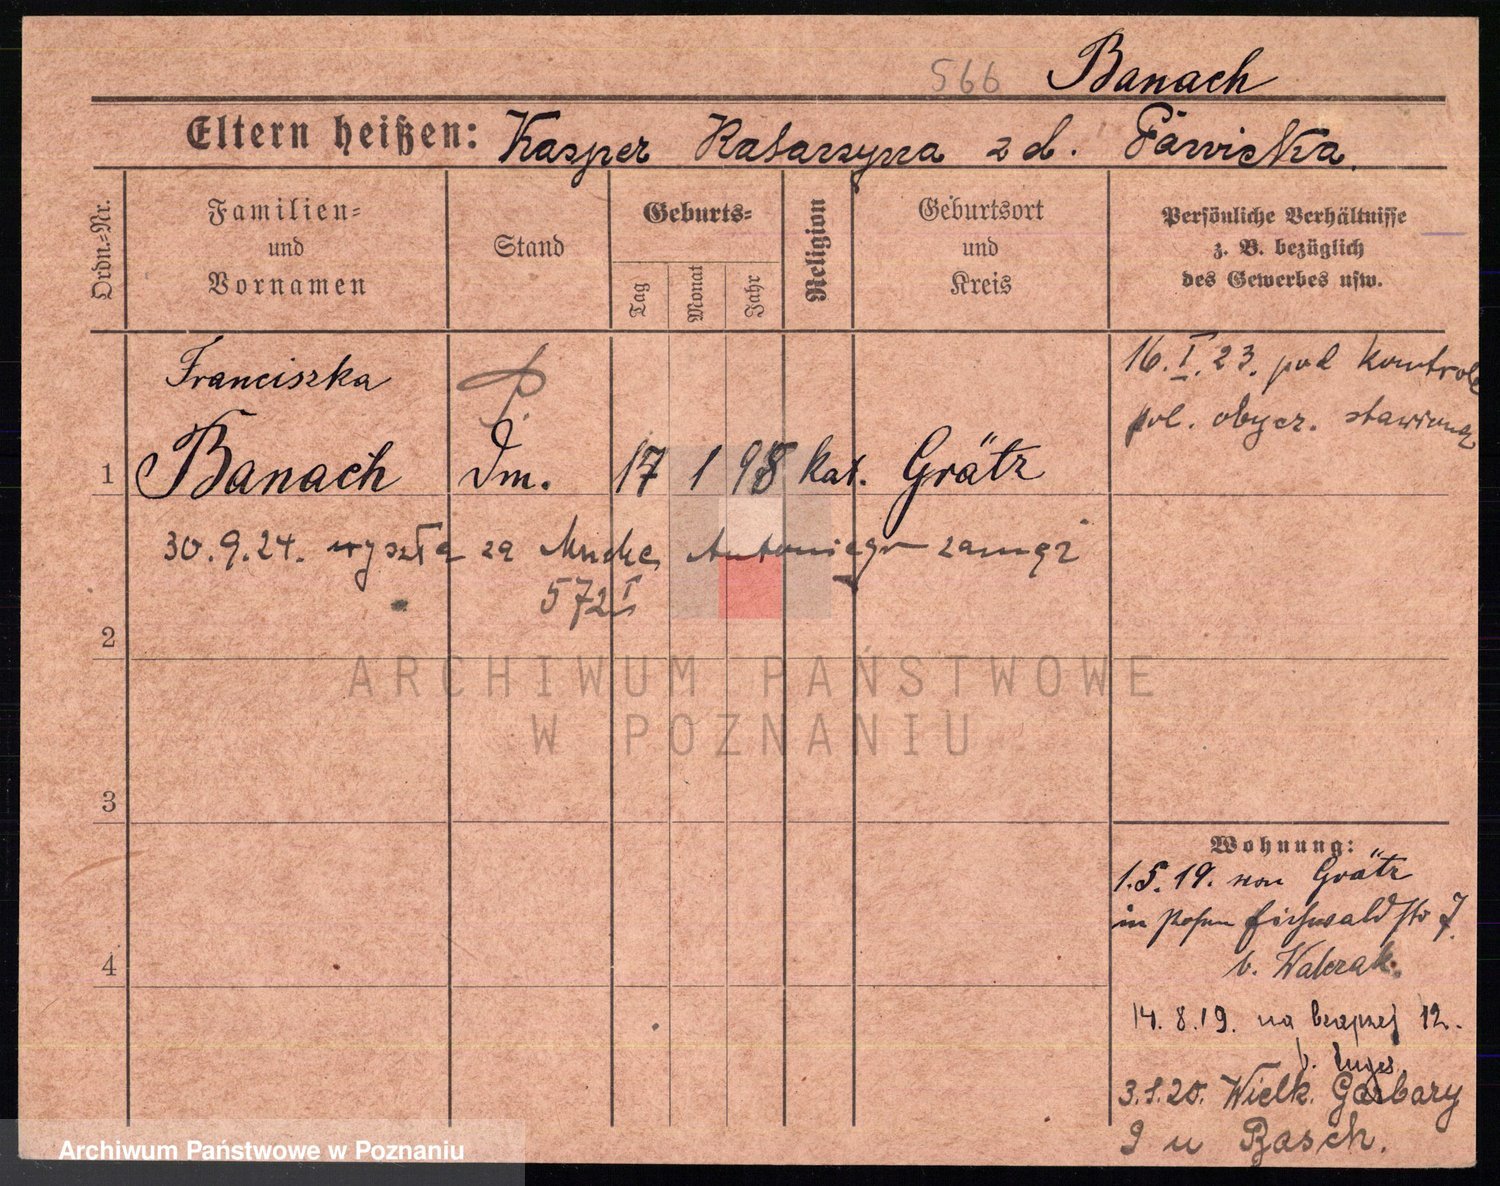 566 Banach
Eltern heißen: Kasper Katarzyna z d.
Ordn.=Nr.
Familien=
und
Vornamen
Stand
Geburts=
Tag
Monat
Jahr
Religion
Geburtsort
und
Kreis
Persönliche Verhältnisse
z. B. bezüglich
des Gewerbes usw.
Franciszka
1 Banach Dm. 17 1 98 kat. Grätz
16. I. 23. pod kontrolę
pol. obycz. stawiona
30. 9. 24. wyszła za Antoniego zamąż
572 I
2
ARCHIWUM PAŃSTWOWE
W POZNANIU
3
4
Wohnung:
1.5.19. von Grätz
in Posen 7
b. Walczak.
14. 8. 19. na 12.
3.1.20. Wielk. Garbary
9 u
Archiwum Państwowe w Poznaniu